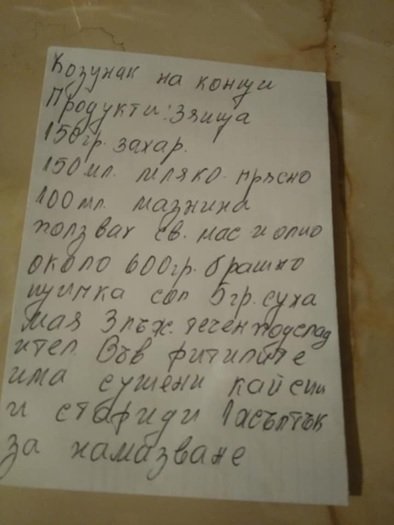 Козунак на конци
Продукти: 3 яйца
150гр. захар.
150мл. мляко. прясно
100мл. мазнина
ползвах св. мас и олио
около 600гр. брашно
щипка сол 5гр. суха
мая 3 лъж. течен подслад
ител. Във фитилите
има сушени кайсии
и стафиди 1 жълтък
за намазване